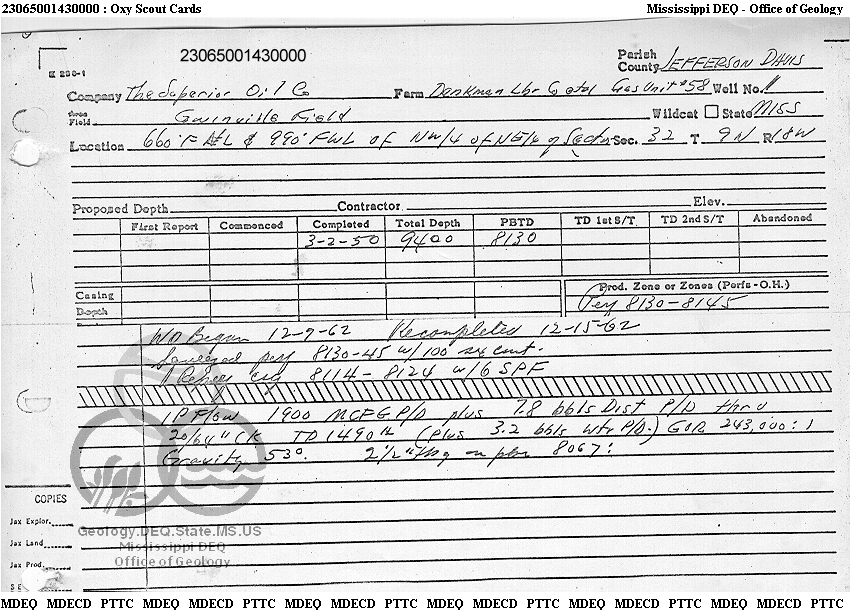 23065001430000 : Oxy Scout Cards Mississippi DEQ - Office of Geology
23065001430000
E 236-1
Parish
County JEFFERSON DAVIS
Company The Superior Oil Co Farm Denkman Lbr Co etal Gas Unit #58 Well No. 1
Field Gwinville Field Wildcat State MISS
Location 660' F L & 990' FWL of NW/4 of NE/4 of Sec. 32 T 9N R 18W
Proposed Depth Contractor Elev.
First Report Commenced Completed Total Depth PBTD TD 1st S/T TD 2nd S/T Abandoned
3-2-50 9400 8130
Casing Prod. Zone or Zones (Perfs - O.H.)
Depth Perf 8130-8145
WO Began 12-9-62 Recompleted 12-15-62
Squeezed perf 8130-45 w/100 sx cmt.
Reperf csg 8114-8124 w/6 SPF
IP Flow 1900 MCFGP/D plus 7.8 bbls Dist P/D thru
20/64" CK TP 1490# (plus 3.2 bbls wtr P/D.) GOR 243,000:1
Gravity 53°. 2 1/2" tbg on pkr 8067'
COPIES
Jax Explor.
Geology.DEQ.State.MS.US
Jax Land
Mississippi DEQ
Office of Geology
Jax Prod.
S E
MDEQ MDECD PTTC MDEQ MDECD PTTC MDEQ MDECD PTTC MDEQ MDECD PTTC MDEQ MDECD PTTC MDEQ MDECD PTTC